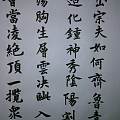 岱宗夫如何齊魯青
造化鍾神秀陰陽割
胸生層雲決眥入
會當凌絕頂一攬眾